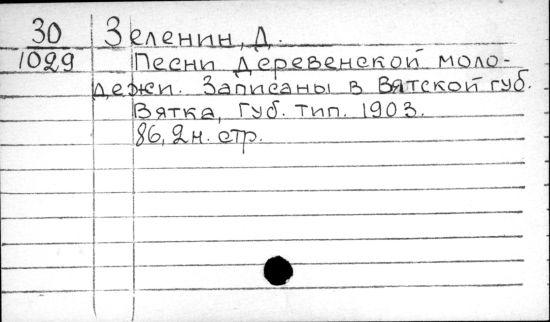 30 Зеленин, Д.
1029 Песни деревенской моло-
дежи. Записаны в Вятской губ.
Вятка, Губ. тип. 1903.
86, 2н. стр.